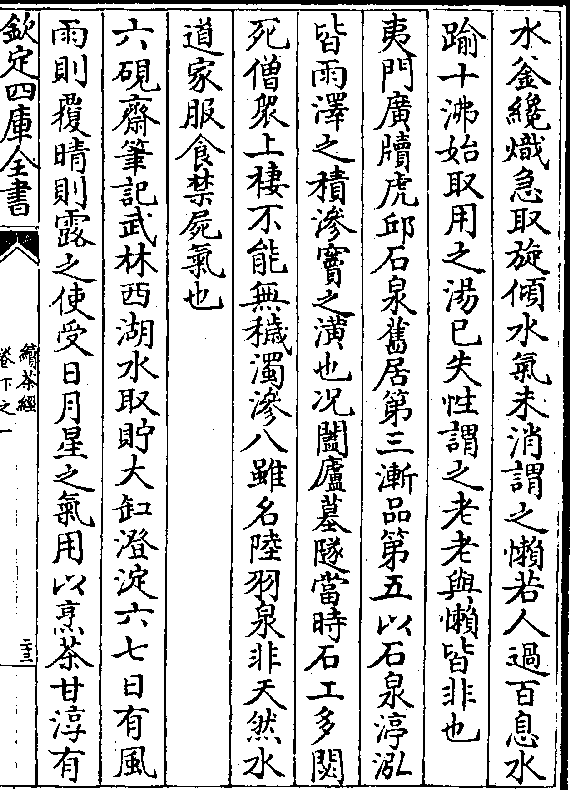 水釡纔熾急取旋傾水氣未消謂之懶若人過百息水
踰十沸始取用之湯已失性謂之老老與懶皆非也
夷門廣牘虎邱石泉舊居第三漸品第五以石泉渟泓
皆雨澤之積滲竇之潢也况闔廬墓隧當時石工多閟
死僧衆上棲不能無穢濁滲入雖名陸羽泉非天然水
道家服食禁屍氣也
六硯齋筆記武林西湖水取貯大缸澄淀六七日有風
雨則覆晴則露之使受日月星之氣用以烹茶甘淳有
欽定四庫全書
續茶經
卷下之一
二十三